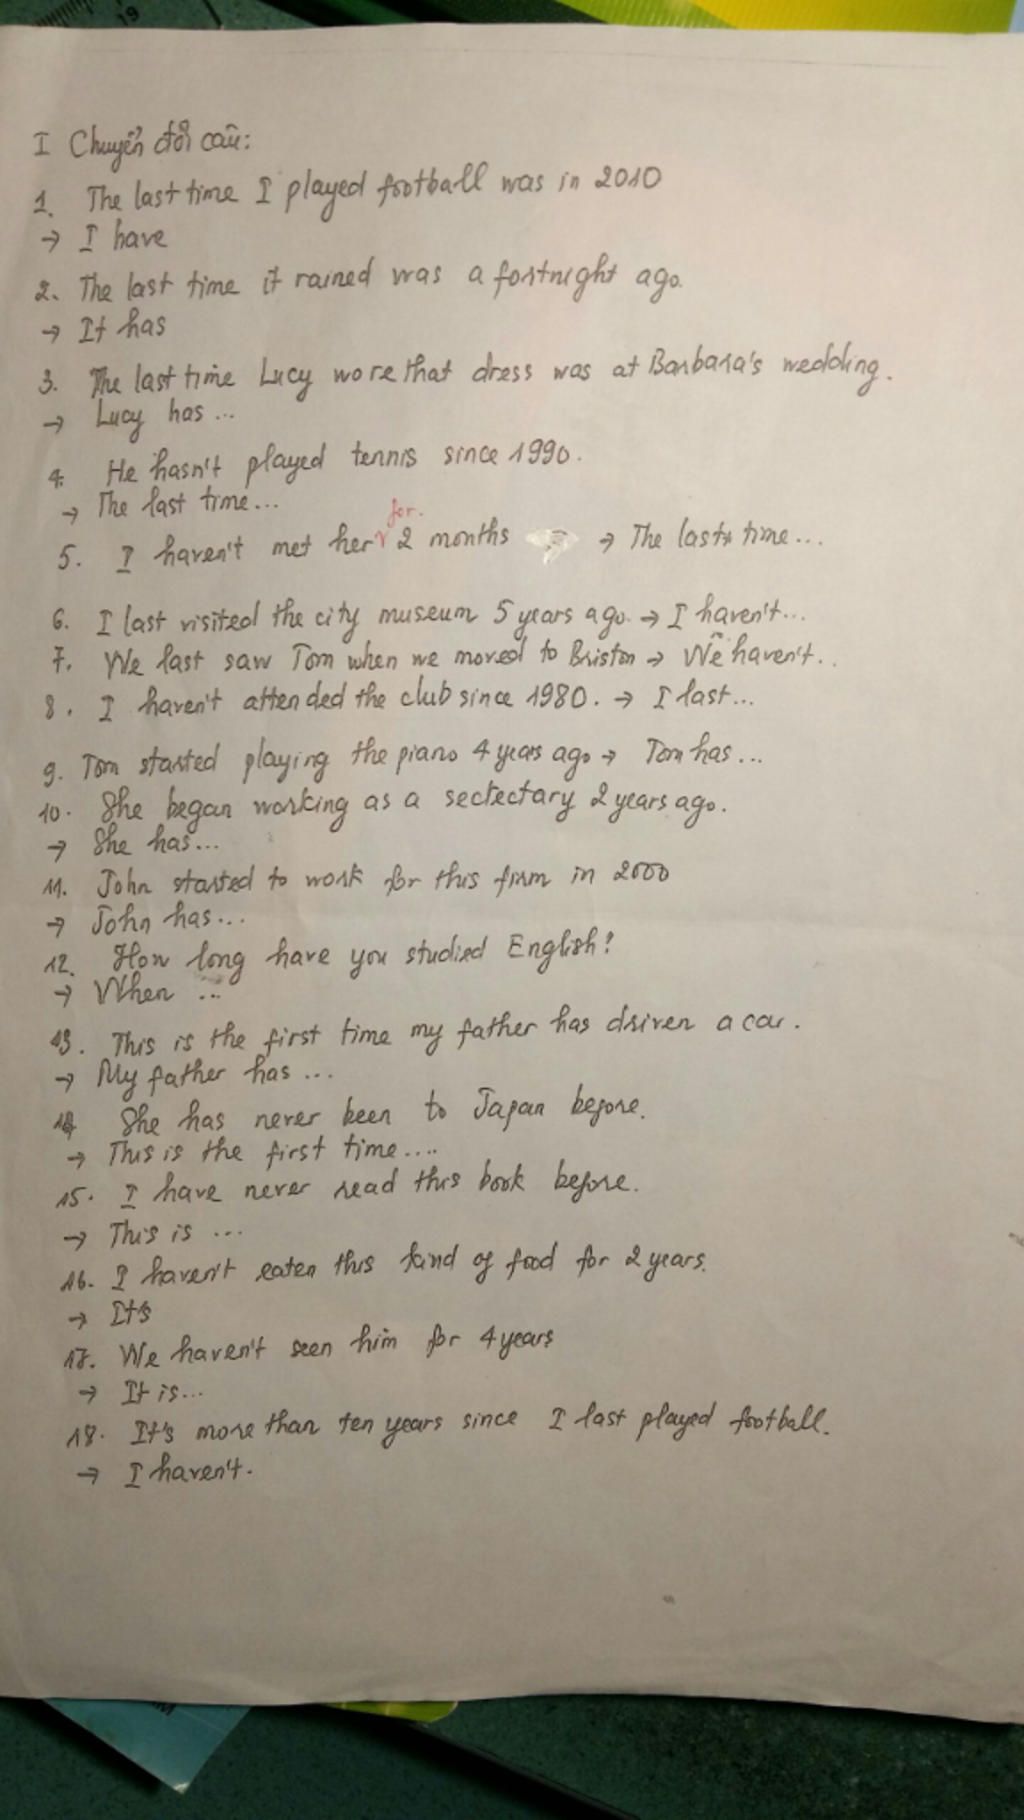 19
I Chuyển đổi câu:
1. The last time I played football was in 2010
→ I have
2. The last time it rained was a fortnight ago.
→ It has
3. The last time Lucy wore that dress was at Barbara's wedding.
→ Lucy has ...
4. He hasn't played tennis since 1990.
→ The last time...
for.
5. I haven't met her 2 months → The last time...
6. I last visited the city museum 5 years ago. → I haven't...
7. We last saw Tom when we moved to Briston → We haven't..
8. I haven't attended the club since 1980. → I last...
9. Tom started playing the piano 4 years ago → Tom has...
10. She began working as a sectectary 2 years ago.
→ She has...
11. John started to work for this firm in 2000
→ John has...
12. How long have you studied English?
→ When ...
13. This is the first time my father has driven a car.
→ My father has ...
14 She has never been to Japan before.
→ This is the first time....
15. I have never read this book before.
→ This is ...
16. I haven't eaten this kind of food for 2 years.
→ It's
17. We haven't seen him for 4 years
→ It is...
18. It's more than ten years since I last played football.
→ I haven't.